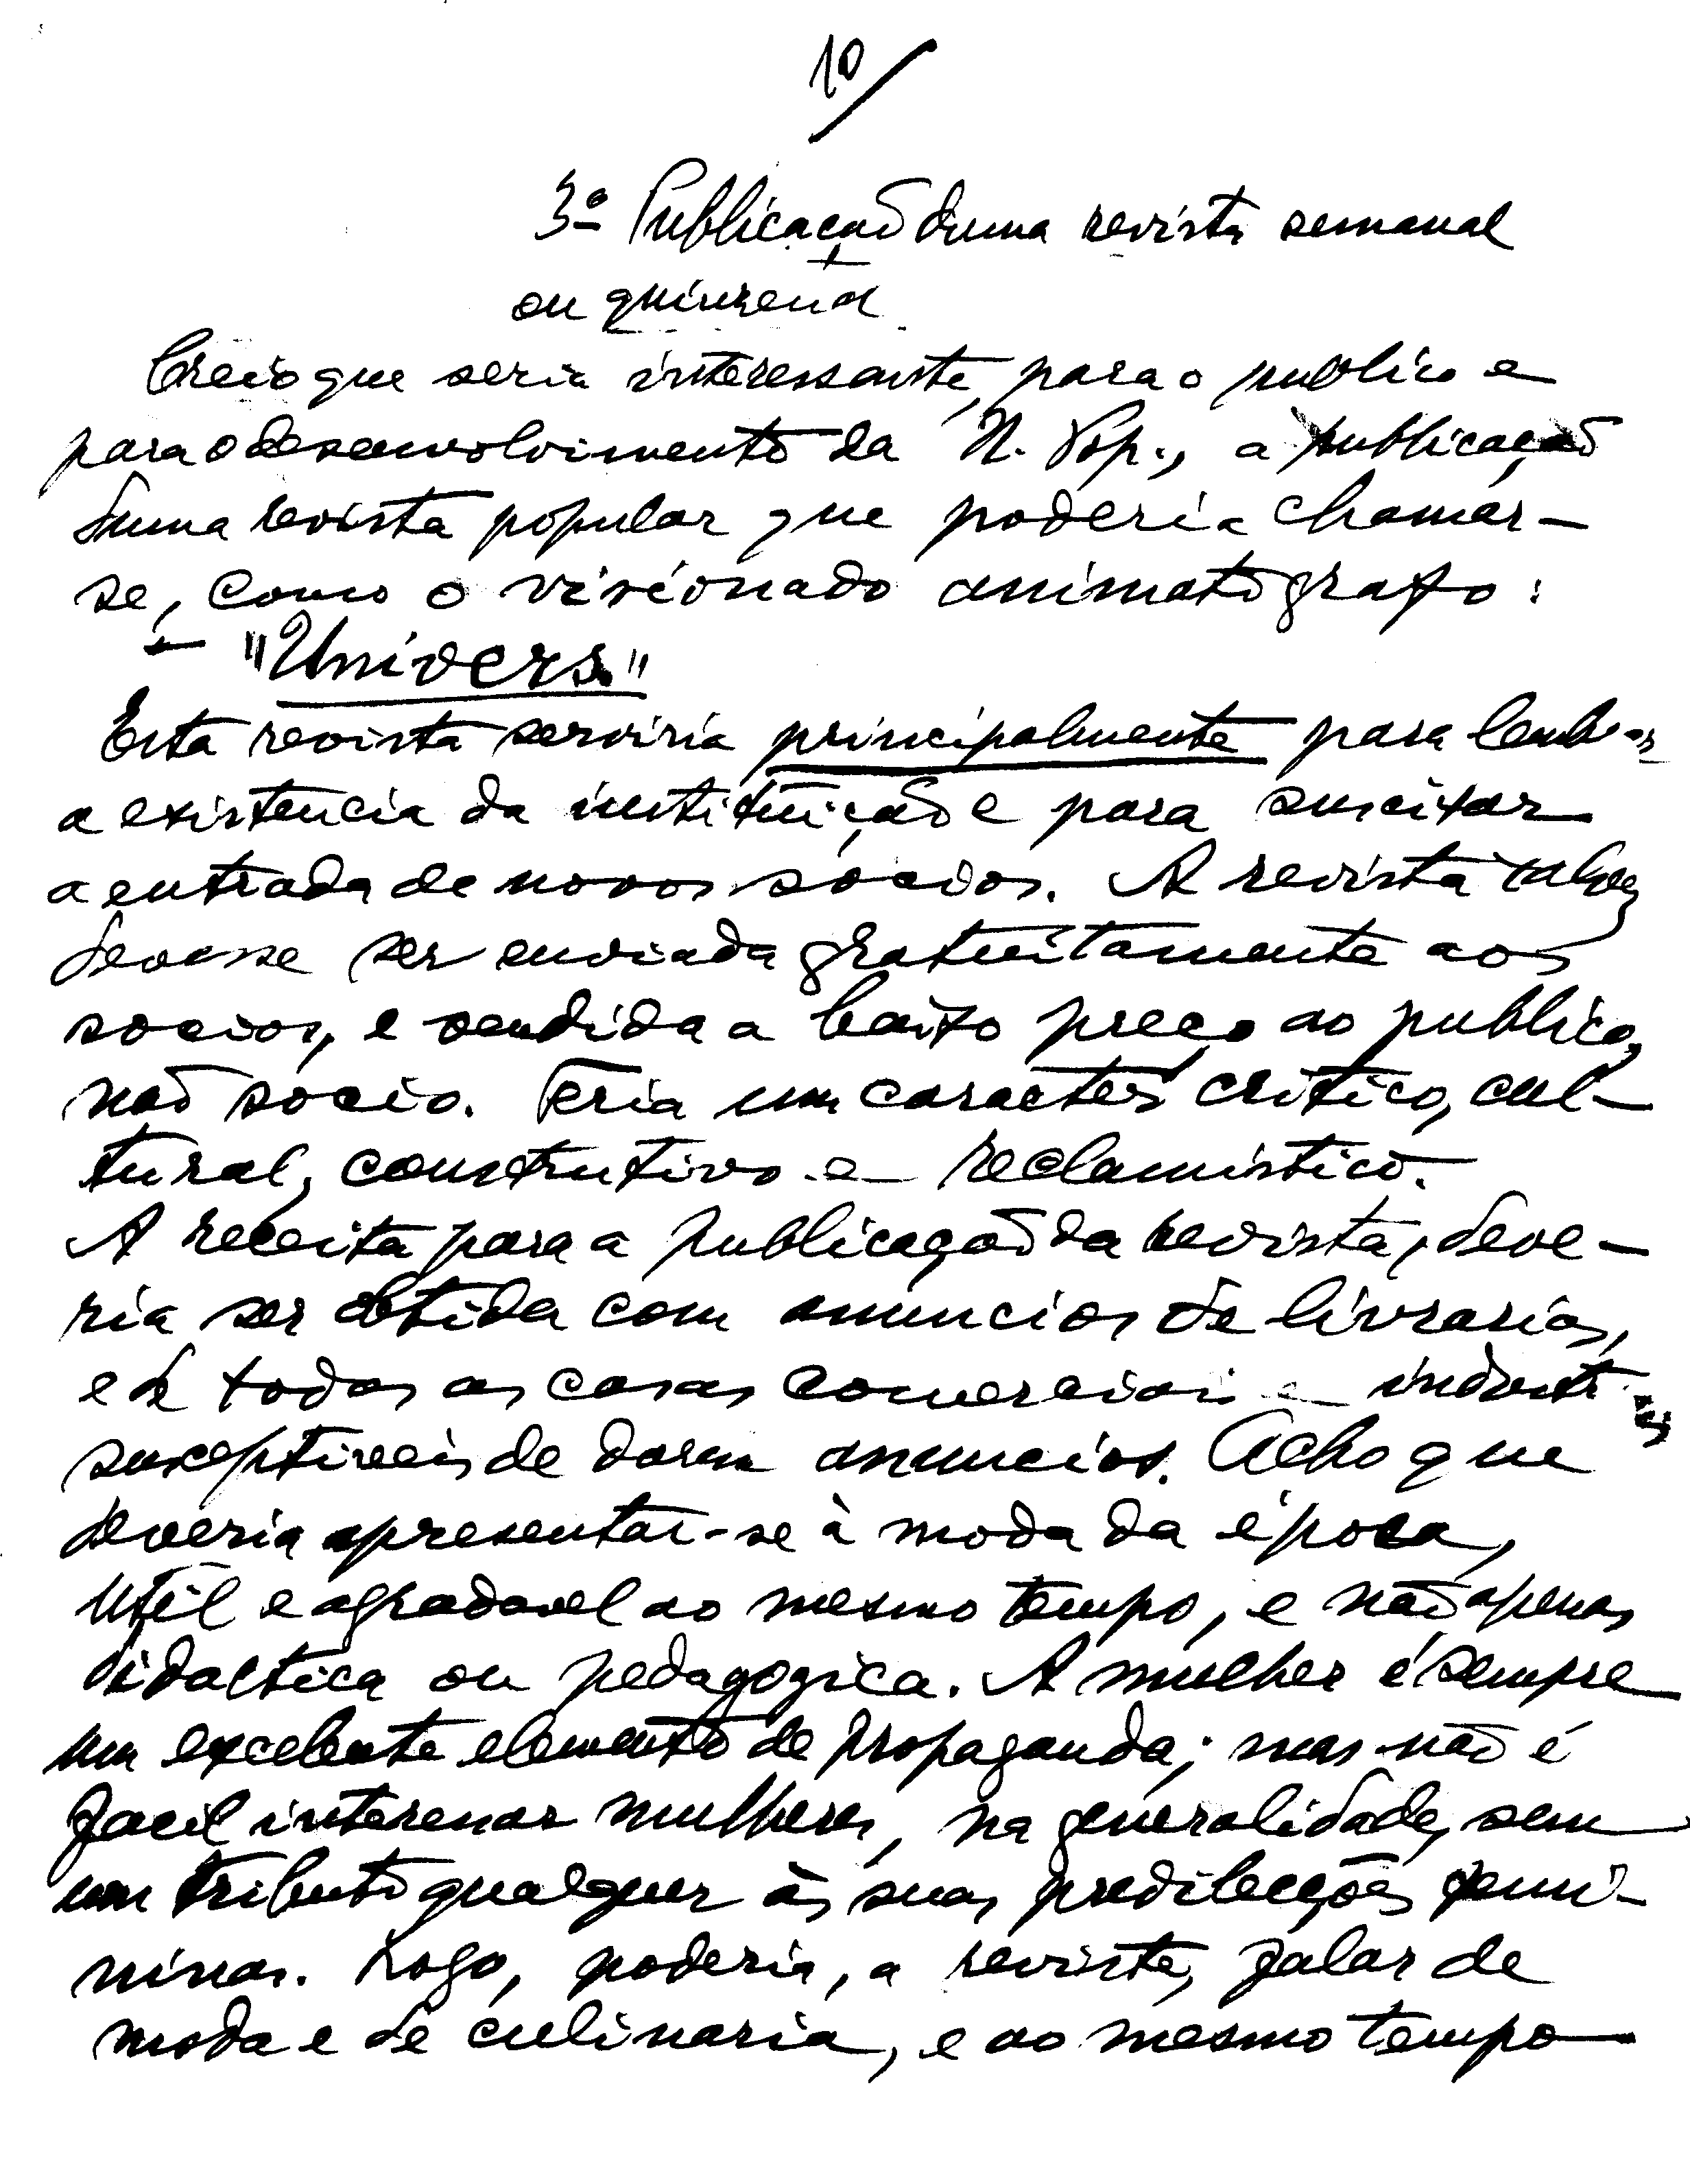 10/
3º Publicação duma revista semanal
ou quinzenal
Creio que seria interessante, para o publico e
para o desenvolvimento da N. Pop., a publicação
duma revista popular que poderia chamar-
se, como o visionado animatografo:
— "Univers."
Esta revista serviria principalmente para lembrar
a existencia da instituição e para suscitar
a entrada de novos sócios. A revista talvez
devesse ser enviada gratuitamente aos
socios, e vendida a baixo preço ao publico,
não socio. Teria um caracter critico, cul-
tural, construtivo e reclamistico.
A receita para a publicação da revista, deve-
ria ser obtida com anuncios de livrarias,
e de todas as casas comerciais e industriais
susceptiveis de darem anuncios. Acho que
deveria apresentar-se à moda da época,
util e agradavel ao mesmo tempo, e não apenas
didactica ou pedagogica. A mulher é sempre
um excelente elemento de propaganda; mas não é
facil interessar mulheres, na generalidade, sem
um tributo qualquer às suas predilecções femi-
ninas. Logo, poderia, a revista, falar de
moda e de culinaria, e ao mesmo tempo